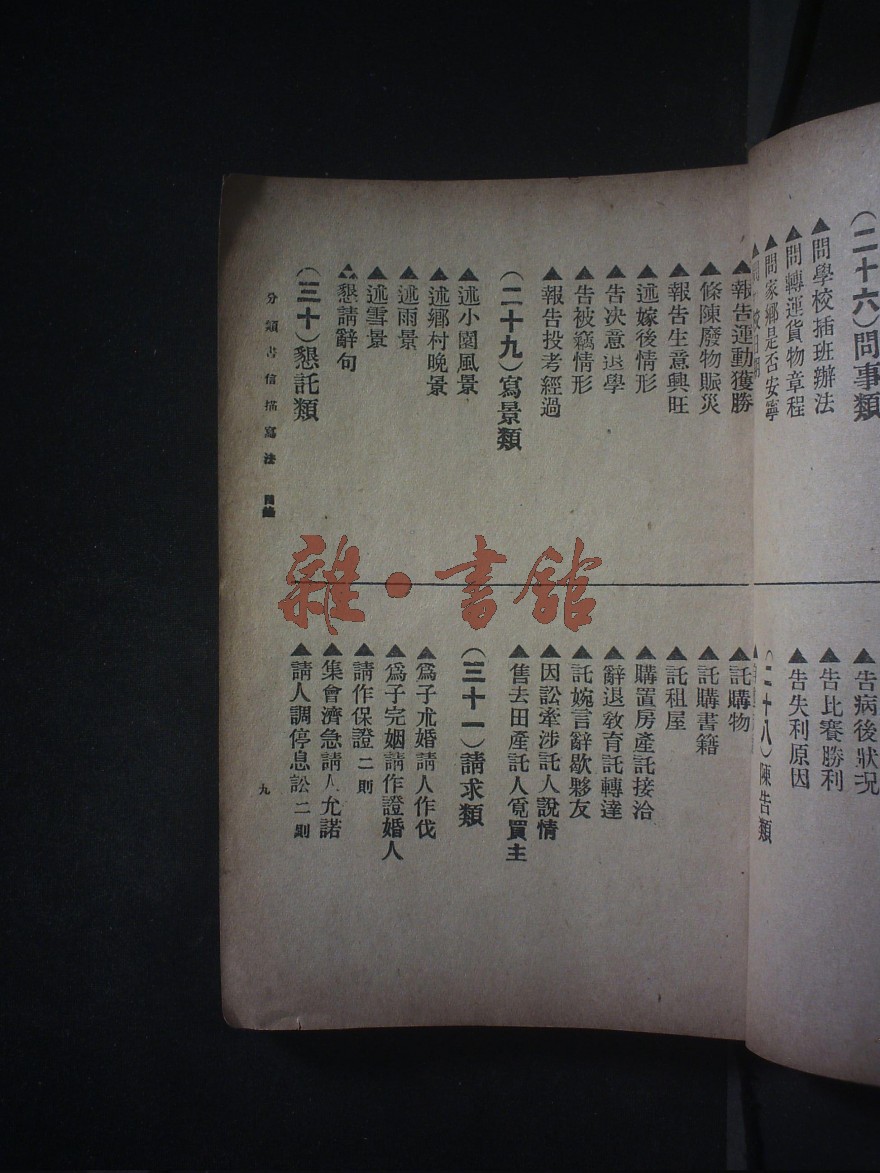 (二十六)問事類
▲問學校插班辦法
▲問轉運貨物章程
▲問家鄉是否安寧
▲告病後狀況
▲告比賽勝利
▲告失利原因
(二十八)陳告類
▲報告運動獲勝
▲條陳廢物賑災
▲報告生意興旺
▲述嫁後情形
▲告决意退學
▲告被竊情形
▲報告投考經過
(二十九)寫景類
▲述小園風景
▲述鄉村晚景
▲述雨景
▲述雪景
▲懇請辭句
(三十)懇託類
▲託購物
▲託購書籍
▲託租屋
▲購置房產託接洽
▲辭退教育託轉達
▲託婉言辭歇夥友
▲因訟牽涉託人說情
▲售去田產託人覓買主
(三十一)請求類
▲爲子求婚請人作伐
▲爲子完姻請作證婚人
▲請作保證二則
▲集會濟急請人允諾
▲請人調停息訟二則
分類書信描寫法 目錄
九
雜·書館